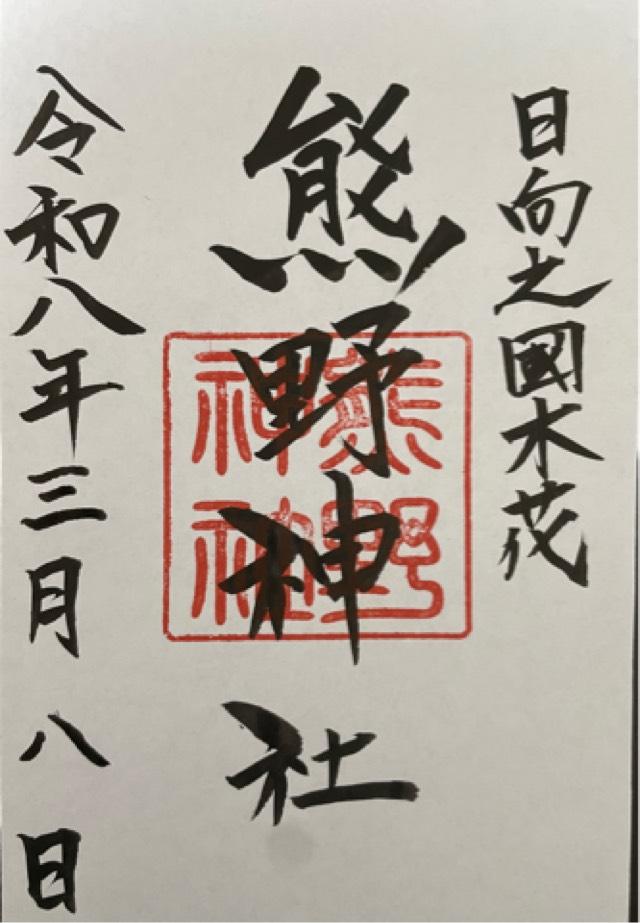 日向之國木花
熊野神社
熊野
神社
令和八年三月八日